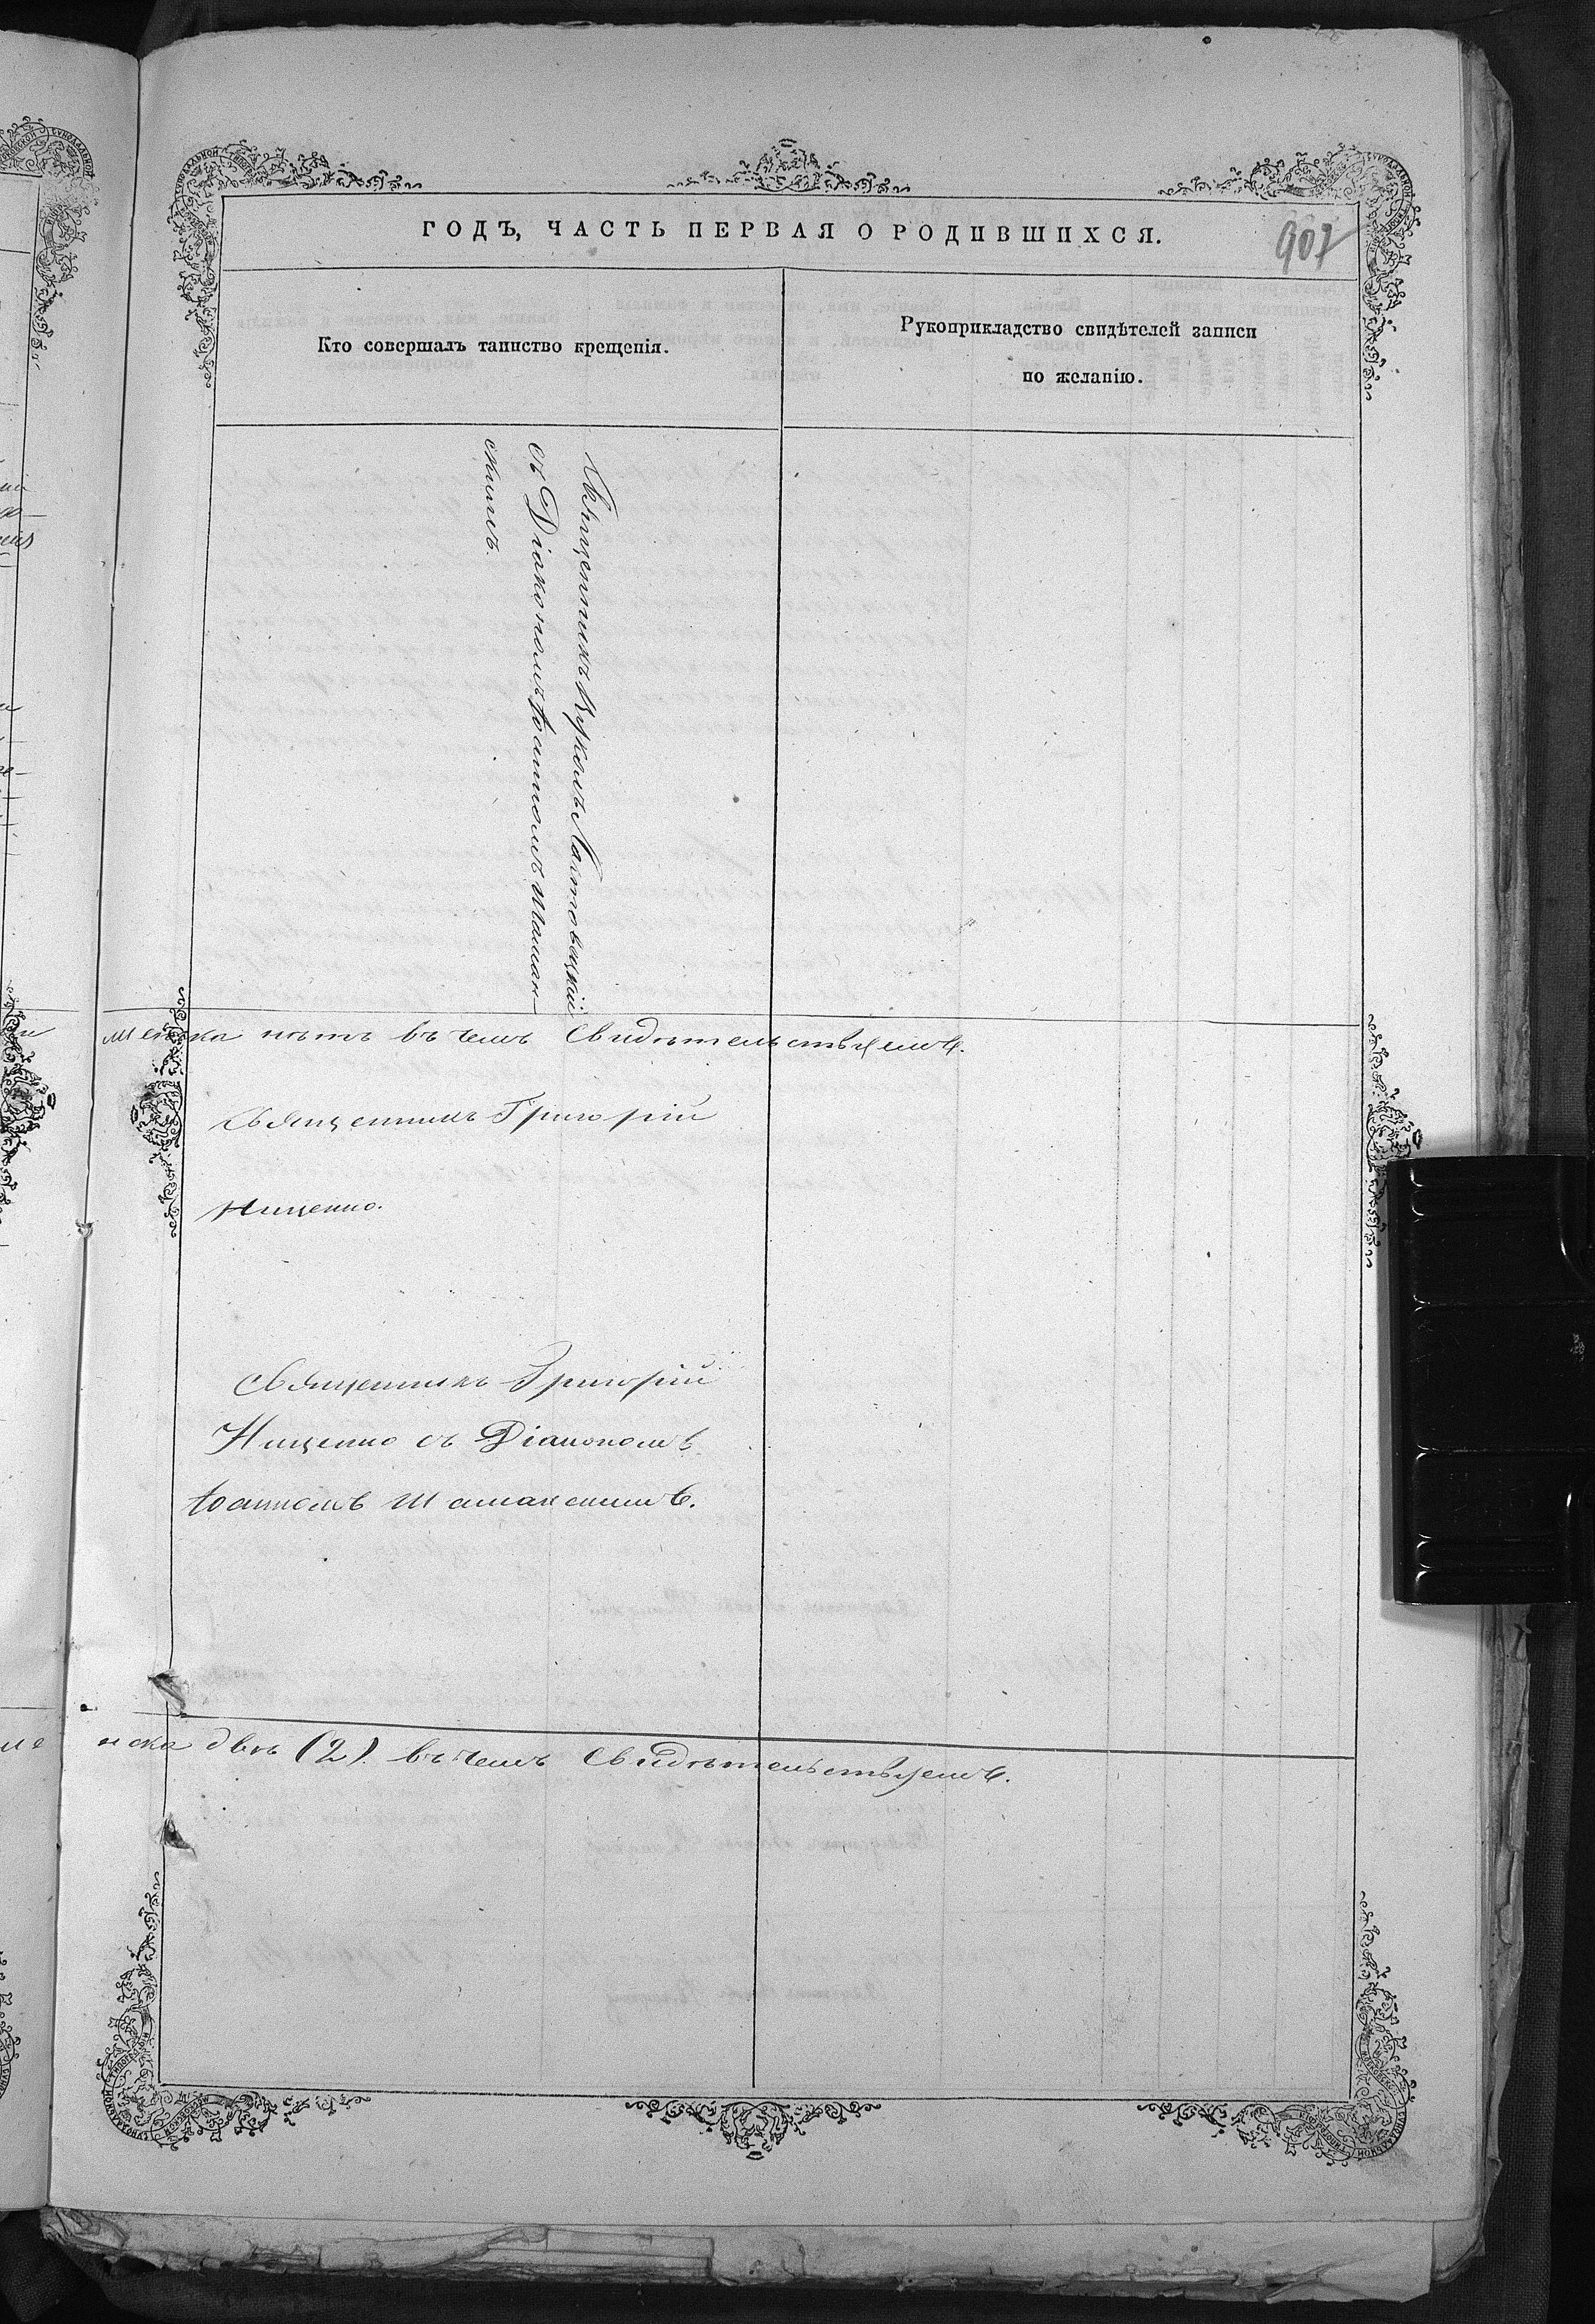 ГОДЪ, ЧАСТЬ ПЕРВАЯ О РОДИВШИХСЯ.
907
Кто совершалъ таинство крещенія.
Рукоприкладство свидѣтелей записи
по желанію.
Священникъ
съ Діакономъ Іоанномъ Шаман-
скимъ.
нѣтъ въ чемъ свидѣтельствуемъ.
Священникъ Григорій
Нищенко.
Священникъ Григорій
Нищенко съ Діакономъ
Іоанномъ Шаманскимъ.
нска двѣ (2). въ чемъ свидѣтельствуемъ.